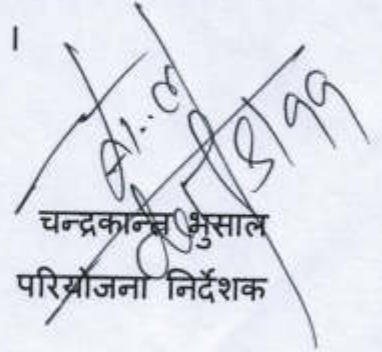 ।
चन्द्रकान्त भुसाल
परियोजना निर्देशक